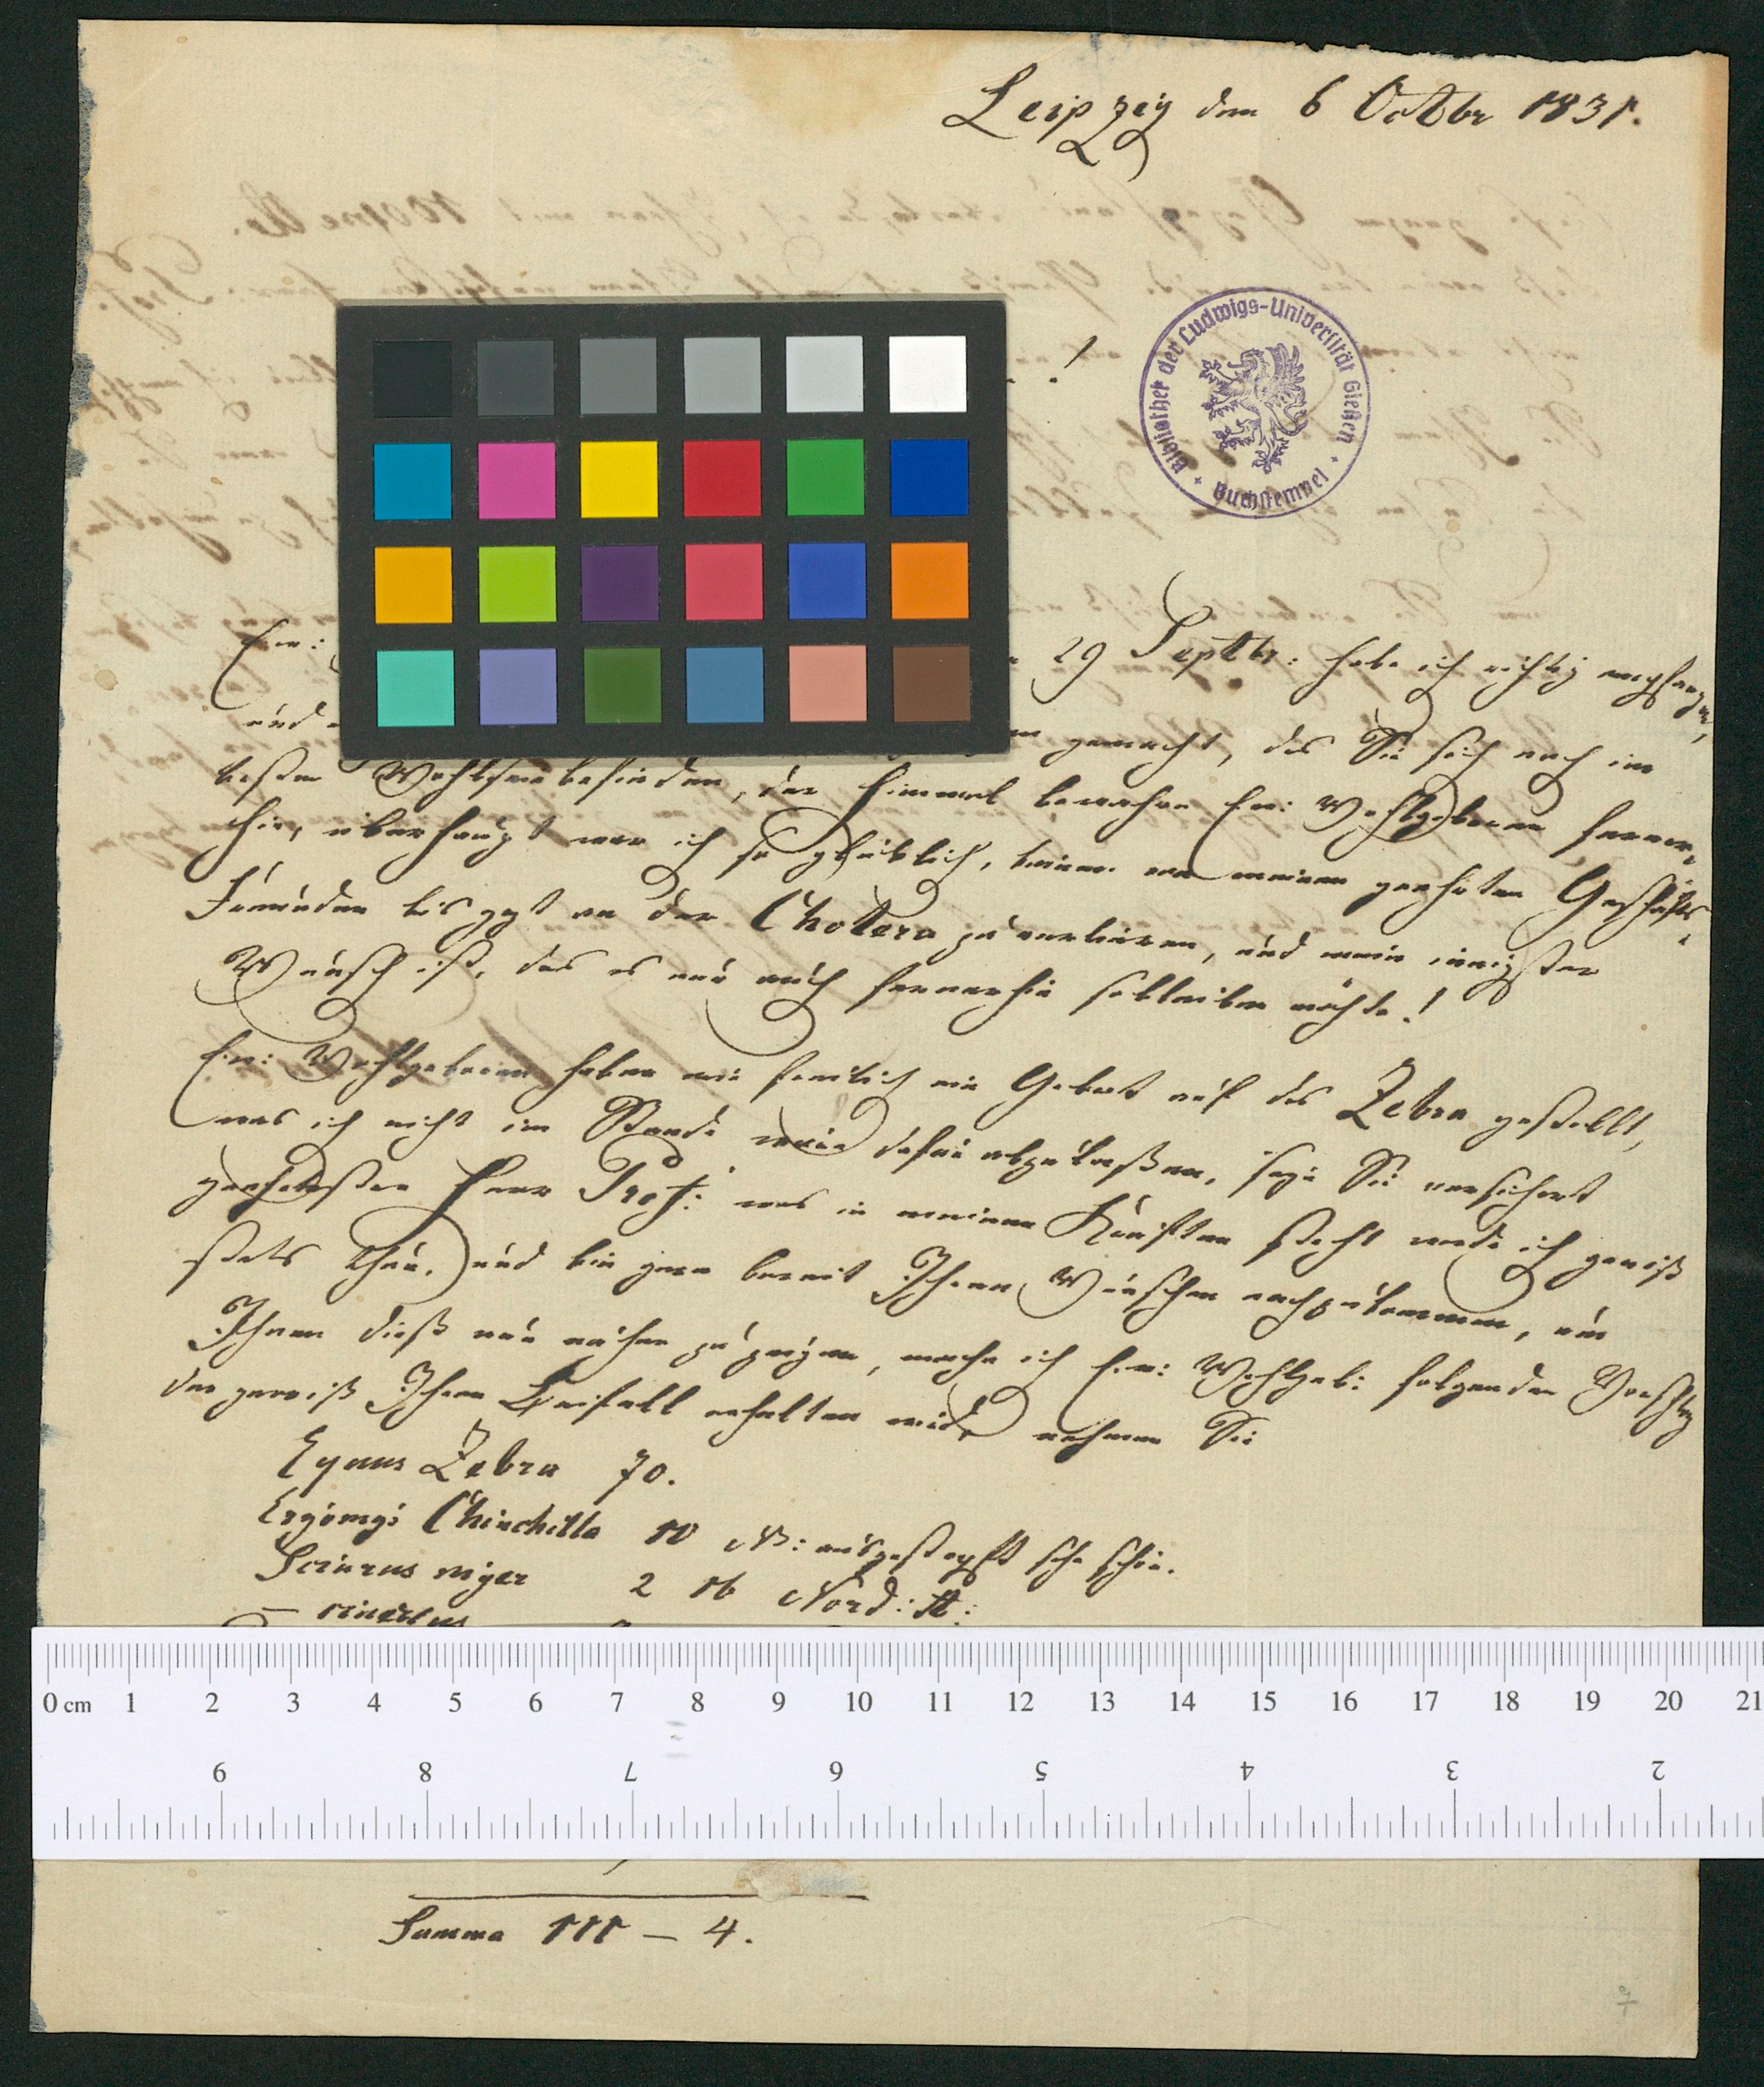 Leipzig den 6 Octbr 1831.
!
Bibliothek der Ludwigs-Universität Gießen
+ Buchstempel +
Ew:
29 Septbr: habe ich richtig empfangen,
und
gemacht, das Sie sich noch im
besten Wohlsein befinden, der Himmel bewahre Ew: Wohlgeboren ferner-
hin, überhaupt war ich so glücklich, keinen von meinen geehrten Geschäfts-
Freunden bis jezt an der Chollera zu verlieren, und mein innigster
Wunsch ist, das es nun auch fernerhin so bleiben möchte!
Ew: Wohlgeboren haben mir freilich ein Gebot auf das Zebra gestellt,
was ich nicht im Stande bin dafür abzulassen, seyn Sie versichert
geehrtester Herr Prof: was in meinen Kräften steht werde ich gewiß
stets thun, und bin gern bereit Ihren Wünschen nachzukommen, um
Ihnen dieß nun näher zu zeigen, mache ich Ew: Wohlgeb: folgenden Vorschlag
der gewiß Ihren Beifall erhalten wird, nehmen Sie
Equus Zebra 70.
Chinchilla 10 NB: ausgestopft sehr schön.
Sciurus niger 2 16 Nord: A:
— cinereus
0 cm 1 2 3 4 5 6 7 8 9 10 11 12 13 14 15 16 17 18 19 20 21
9 8 7 6 5 4 3 2
Summa 111 — 4.